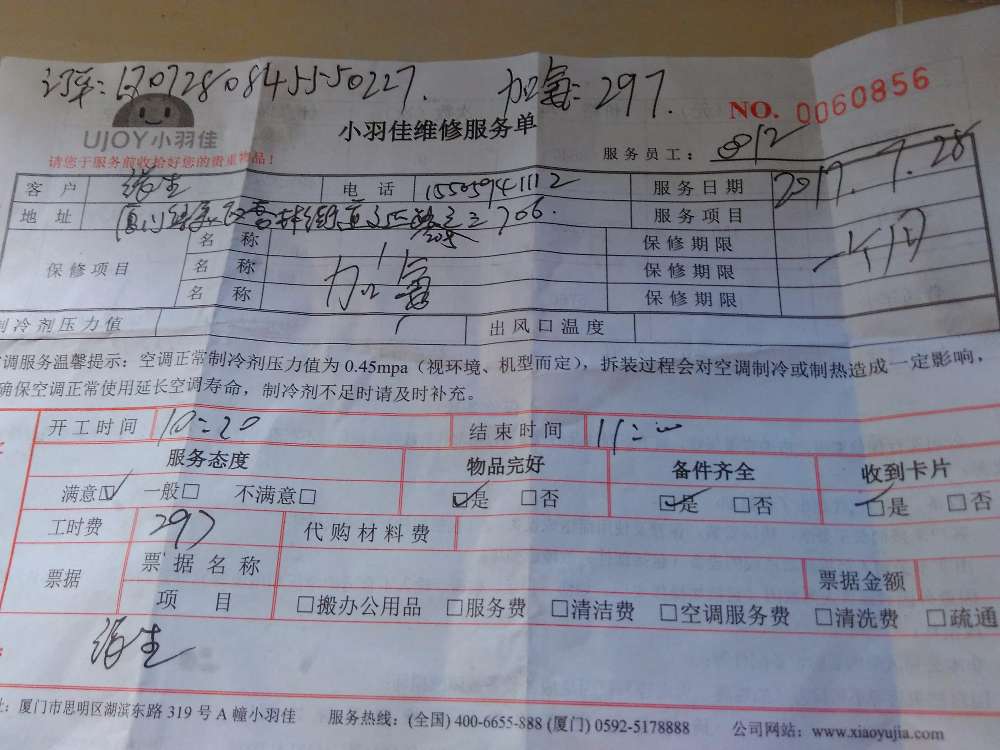 订单: 17072808455550227. 加氟: 297.
NO. 0060856
UJOY小羽佳
小羽佳维修服务单
请您于服务前收拾好您的贵重物品!
服务员工: 812
客户 电话 15505941112 服务日期 2017.7.28
地址 706. 服务项目
名称 保修期限
保修项目 名称 加氟 保修期限 一个月
名称 保修期限
制冷剂压力值 出风口温度
调服务温馨提示: 空调正常制冷剂压力值为 0.45mpa (视环境、机型而定), 拆装过程会对空调制冷或制热造成一定影响,
确保空调正常使用延长空调寿命, 制冷剂不足时请及时补充。
开工时间 10:20 结束时间 11:00
服务态度 物品完好 备件齐全 收到卡片
满意☑ 一般□ 不满意□ ☑是 □否 ☑是 □否 ☑是 □否
工时费 297 代购材料费
票据 票据名称 票据金额
项目 □搬办公用品 □服务费 □清洁费 □空调服务费 □清洗费 □疏通
址: 厦门市思明区湖滨东路 319 号 A 幢小羽佳 服务热线: (全国) 400-6655-888 (厦门) 0592-5178888 公司网站: www.xiaoyujia.com